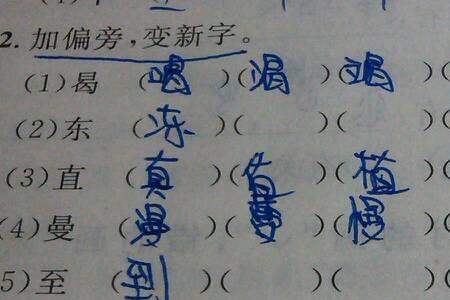 2. 加偏旁，变新字。
(1)曷 (喝)(渴)( )(
(2)东 (冻)( )( )(
(3)直 (真)(值)(植)
(4)曼 (漫)( )(慢)(
5)至 (到)( )( )(